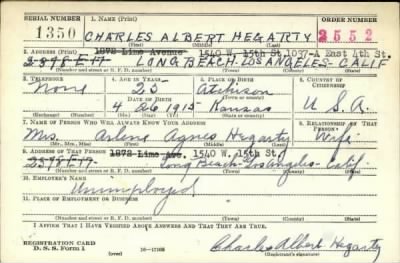 SERIAL NUMBER 1. NAME (Print) ORDER NUMBER
1350 CHARLES ALBERT HEGARTY 2552
(First) (Middle) (Last)
2. ADDRESS (Print) 1872 Lime Avenue 1540 W. 15th St. 1037-A East 4th St.
2898 E 17 LONG BEACH. LOS ANGELES- CALIF
(Number and street or R. F. D. number) (Town) (County) (State)
3. TELEPHONE 4. AGE IN YEARS 5. PLACE OF BIRTH 6. COUNTRY OF CITIZENSHIP
None 25 Atchison
DATE OF BIRTH (Town or county)
4 26 1915 Kansas U S A.
(Exchange) (Number) (Mo.) (Day) (Yr.) (State or country)
7. NAME OF PERSON WHO WILL ALWAYS KNOW YOUR ADDRESS 8. RELATIONSHIP OF THAT PERSON
Mrs. Arlene Agnes Hegarty Wife
(Mr., Mrs., Miss) (First) (Middle) (Last)
9. ADDRESS OF THAT PERSON 1872 Lime Ave. 1540 W. 15th St.
2898 E 17 Long Beach- Los Angeles- Calif.
(Number and street or R. F. D. number) (Town) (County) (State)
10. EMPLOYER'S NAME
Unimployd
11. PLACE OF EMPLOYMENT OR BUSINESS
(Number and street or R. F. D. number) (Town) (County) (State)
I AFFIRM THAT I HAVE VERIFIED ABOVE ANSWERS AND THAT THEY ARE TRUE.
REGISTRATION CARD
D. S. S. Form 1 16-17105 Charles Albert Hegarty
(Registrant's signature)